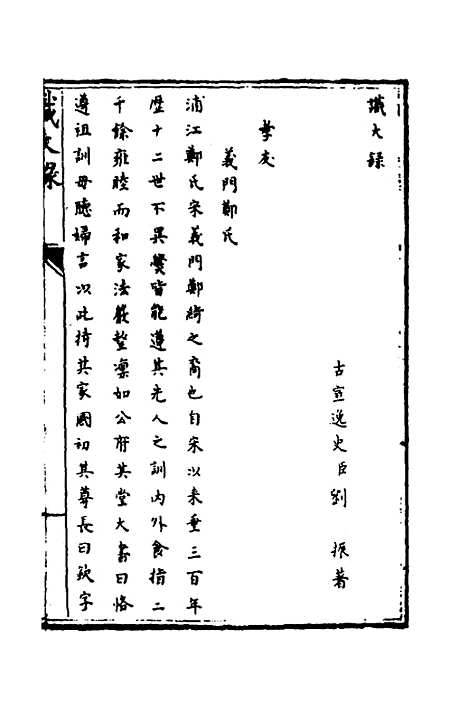 識大錄
古宣逸史臣劉 振著
孝友
義門鄭氏
浦江鄭氏宋義門鄭綺之裔也自宋以来垂三百年
歷十二世不異爨皆能遵其先人之訓內外食指二
千餘雍睦而和家法嚴整凜如公府其堂大書曰恪
遵祖訓毋聽婦言以此持其家國初其尊長曰欽字
識大錄